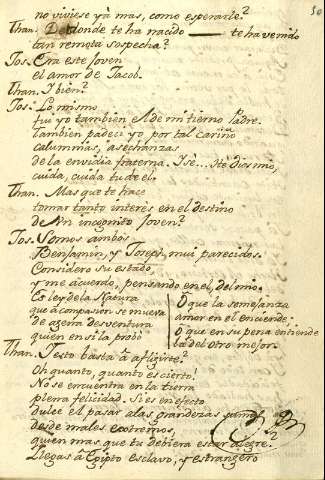 no viviese yà mas, como esperarle?
Than. De donde te ha nacido — te ha venido
tan remota sospecha?
Jos. Era este Joven
el amor de Jacob.
Than. Y bien?
Jos. Lo mismo
fui yo tambien del mi tierno Padre.
Tambien padeci yo por tal cariño
calumnias, asechanzas
de la envidia fraterna. Y sè... Hà dios mio,
cuida, cuida tu de el.
Than. Mas que te hace
tomar tanto interès en el destino
de un incognito Joven?
Jos. Somos ambos
Benjamin, y Joseph, mui parecidos.
Considero su estado,
y me acuerdo, pensando en el, del mio.
Es ley de la Natura
que à compasion se mueva
de agena desventura
quien en si la probò
O que la semejanza
amor en el enciende;
O que en su pena entiende
la del otro mejor.
Than. Y esto basta à afligirte?
Oh quanto, quanto es cierto!
No se encuentra en la tierra
plena felicidad. Si es en efecto
dulce el pasar a las grandezas
desde males extremos,
quien mas que tu debiera estar alegre?
Llegas à Egipto esclavo, y estrangero